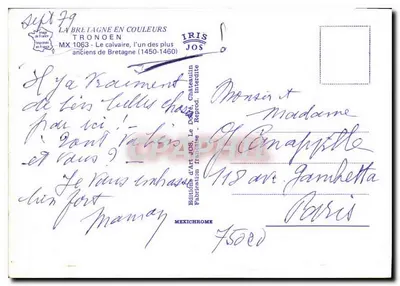 sept 79
LA BRETAGNE EN COULEURS
TRONOEN
MX 1063 - Le calvaire, l'un des plus
anciens de Bretagne (1450-1460)
IRIS
JOS
Il y a vraiment
de très belles choses
par ici ! -
à
et vous ? -
Je vous embrasse
bien fort
maman
Editions d'Art JOS, Le Doaré, Châteaulin
Fabrication française - Reprod. interdite
MEXICHROME
Monsieur et
Madame
118 ave Gambetta
Paris
75020